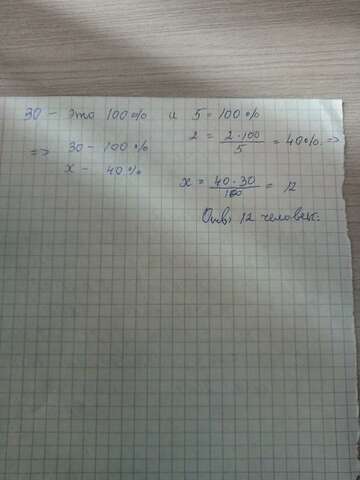 30 - это 100% и 5 = 100%
2 = 2·100/5 = 40% =>
=> 30 - 100%
x - 40%
x = 40·30/100 = 12
Отв: 12 человек.